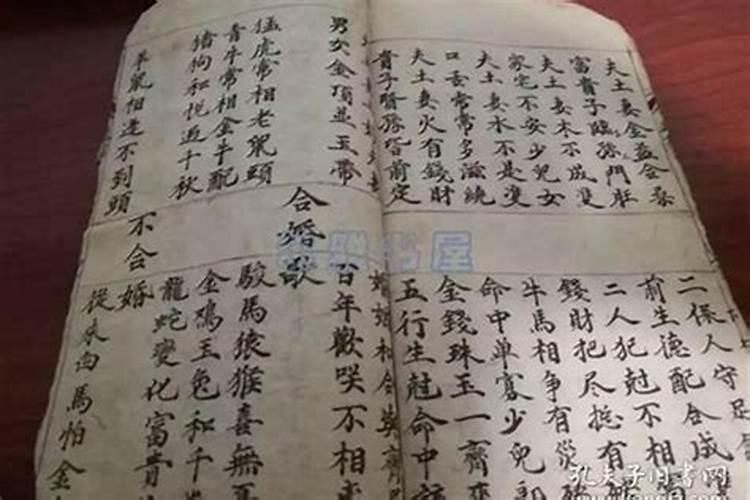 夫土妻金益合
富貴子臨孫門旺
夫土妻木不成雙
家宅不安少兒女
夫土妻水不是雙
口舌常常多滋繞
夫土妻火有錢財
貴子賢孫皆前定
二保人守足
前生德配合成
二人犯尅不相
錢財把尽有
牛馬相争有災
命中单寡少兒郎
金錢珠玉一齊來
五行生尅命中
婚姻和合
男女金項並玉帶
猛虎常相老鼠頭
青牛常相金牛配
猪狗和悦過千秋
羊鼠相逢不到頭
合婚歌
百年歡咲不相
駿馬猿猴喜無
金鸡玉兔和千
龍蛇變化富貴
不合婚
從来白馬怕金
孔夫子旧書网